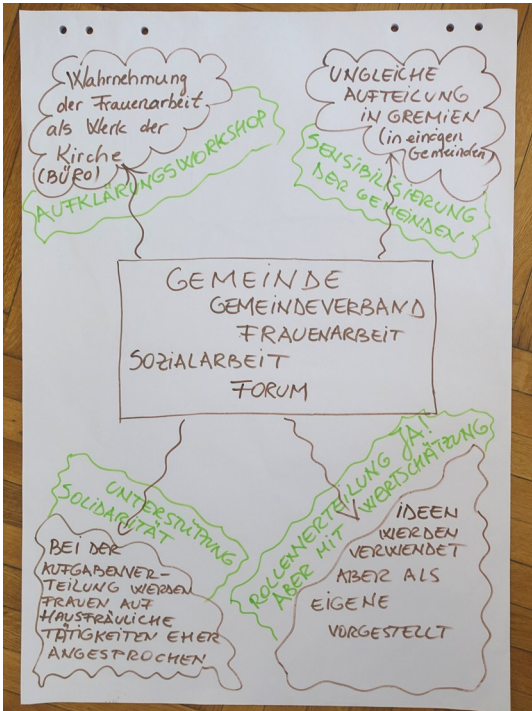 Wahrnehmung
der Frauenarbeit
als Werk der
Kirche
(BÜRO)
AUFKLÄRUNGSWORKSHOP
UNGLEICHE
AUFTEILUNG
IN GREMIEN
(in einigen
Gemeinden)
SENSIBILISIERUNG
DER GEMEINDEN
GEMEINDE
GEMEINDEVERBAND
FRAUENARBEIT
SOZIALARBEIT
FORUM
UNTERSTÜTZUNG
SOLIDARITÄT
BEI DER
AUFGABENVER-
TEILUNG WERDEN
FRAUEN AUF
HAUSFRÄULICHE
TÄTIGKEITEN EHER
ANGESPROCHEN
ROLLENVERTEILUNG JA!
ABER MIT WERTSCHÄTZUNG
IDEEN
WERDEN
VERWENDET
ABER ALS
EIGENE
VORGESTELLT